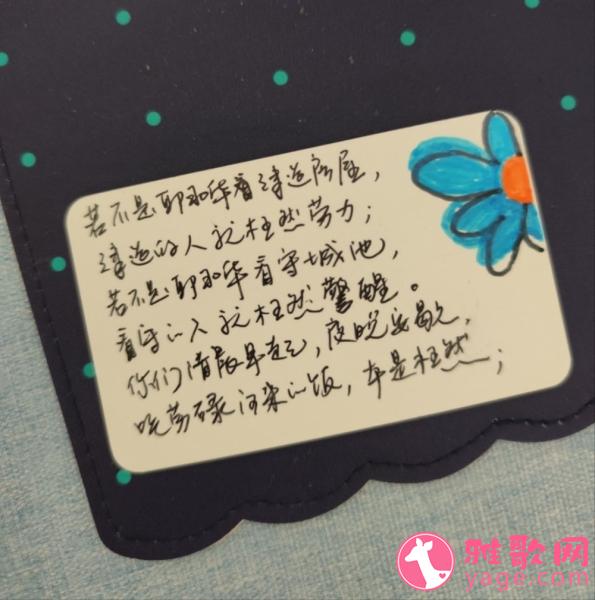 若不是耶和华看建造房屋，
建造的人就枉然劳力；
若不是耶和华看守城池，
看守的人就枉然警醒。
你们清晨早起，夜晚安歇，
吃劳碌得来的饭，本是枉然；
雅歌网
yage.com